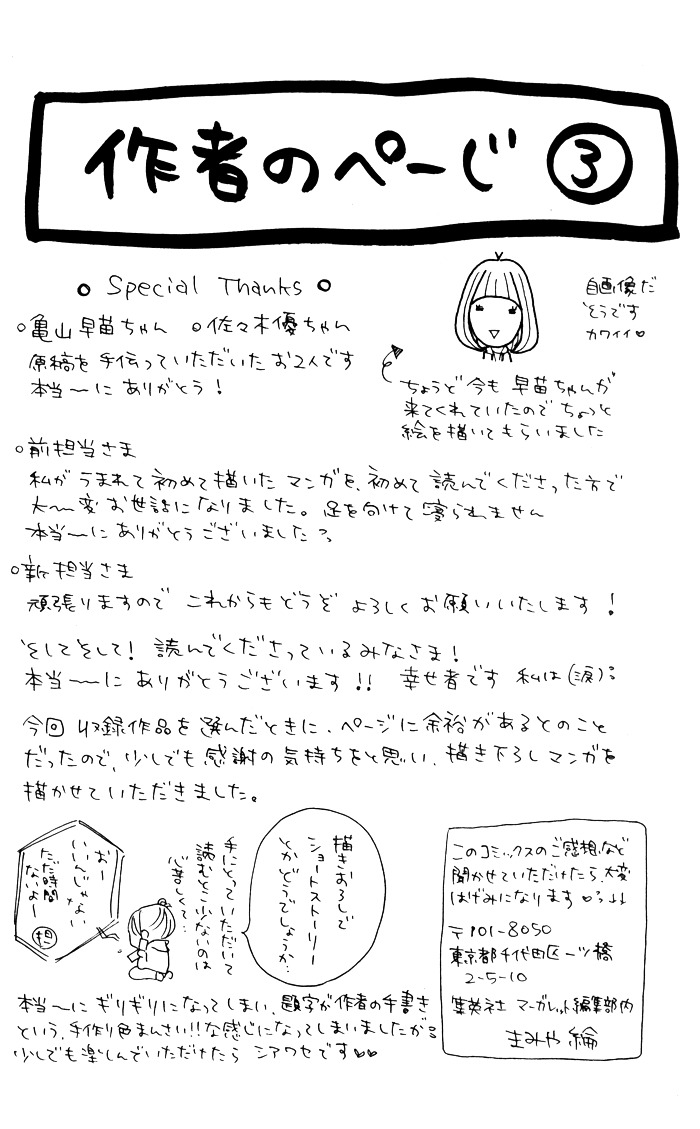 作者のページ ③
○ Special Thanks ○
○亀山早苗ちゃん ○佐々木優ちゃん
原稿を手伝っていただいたお2人です
本当〜にありがとう!
自画像だ
そうです
カワイイ♡
ちょうど今も早苗ちゃんが
来てくれていたのでちょっと
絵を描いてもらいました
○前担当さま
私がうまれて初めて描いたマンガを、初めて読んでくださった方で
大〜変お世話になりました。足を向けて寝られません
本当〜にありがとうございました
○新担当さま
頑張りますのでこれからもどうぞよろしくお願いいたします!
そしてそして!読んでくださっているみなさま!
本当〜にありがとうございます!!幸せ者です 私は(涙)
今回収録作品を選んだときに、ページに余裕があるとのこと
だったので、少しでも感謝の気持ちをと思い、描き下ろしマンガを
描かせていただきました。
描きおろしで
ショートストーリー
とかどうでしょうか…
手にとっていただいて
読むとこ少ないのは
心苦しくて…
おー
いいんじゃない
ただ時間
ないよー
担
本当〜にギリギリになってしまい、題字が作者の手書き
という、手作り色まんさい!!な感じになってしまいましたが
少しでも楽しんでいただけたら シアワセです♡♡
このコミックスのご感想など
聞かせていただけたら、大変
はげみになります♡
〒101-8050
東京都千代田区一ツ橋
2-5-10
集英社 マーガレット編集部内
まみや 綸